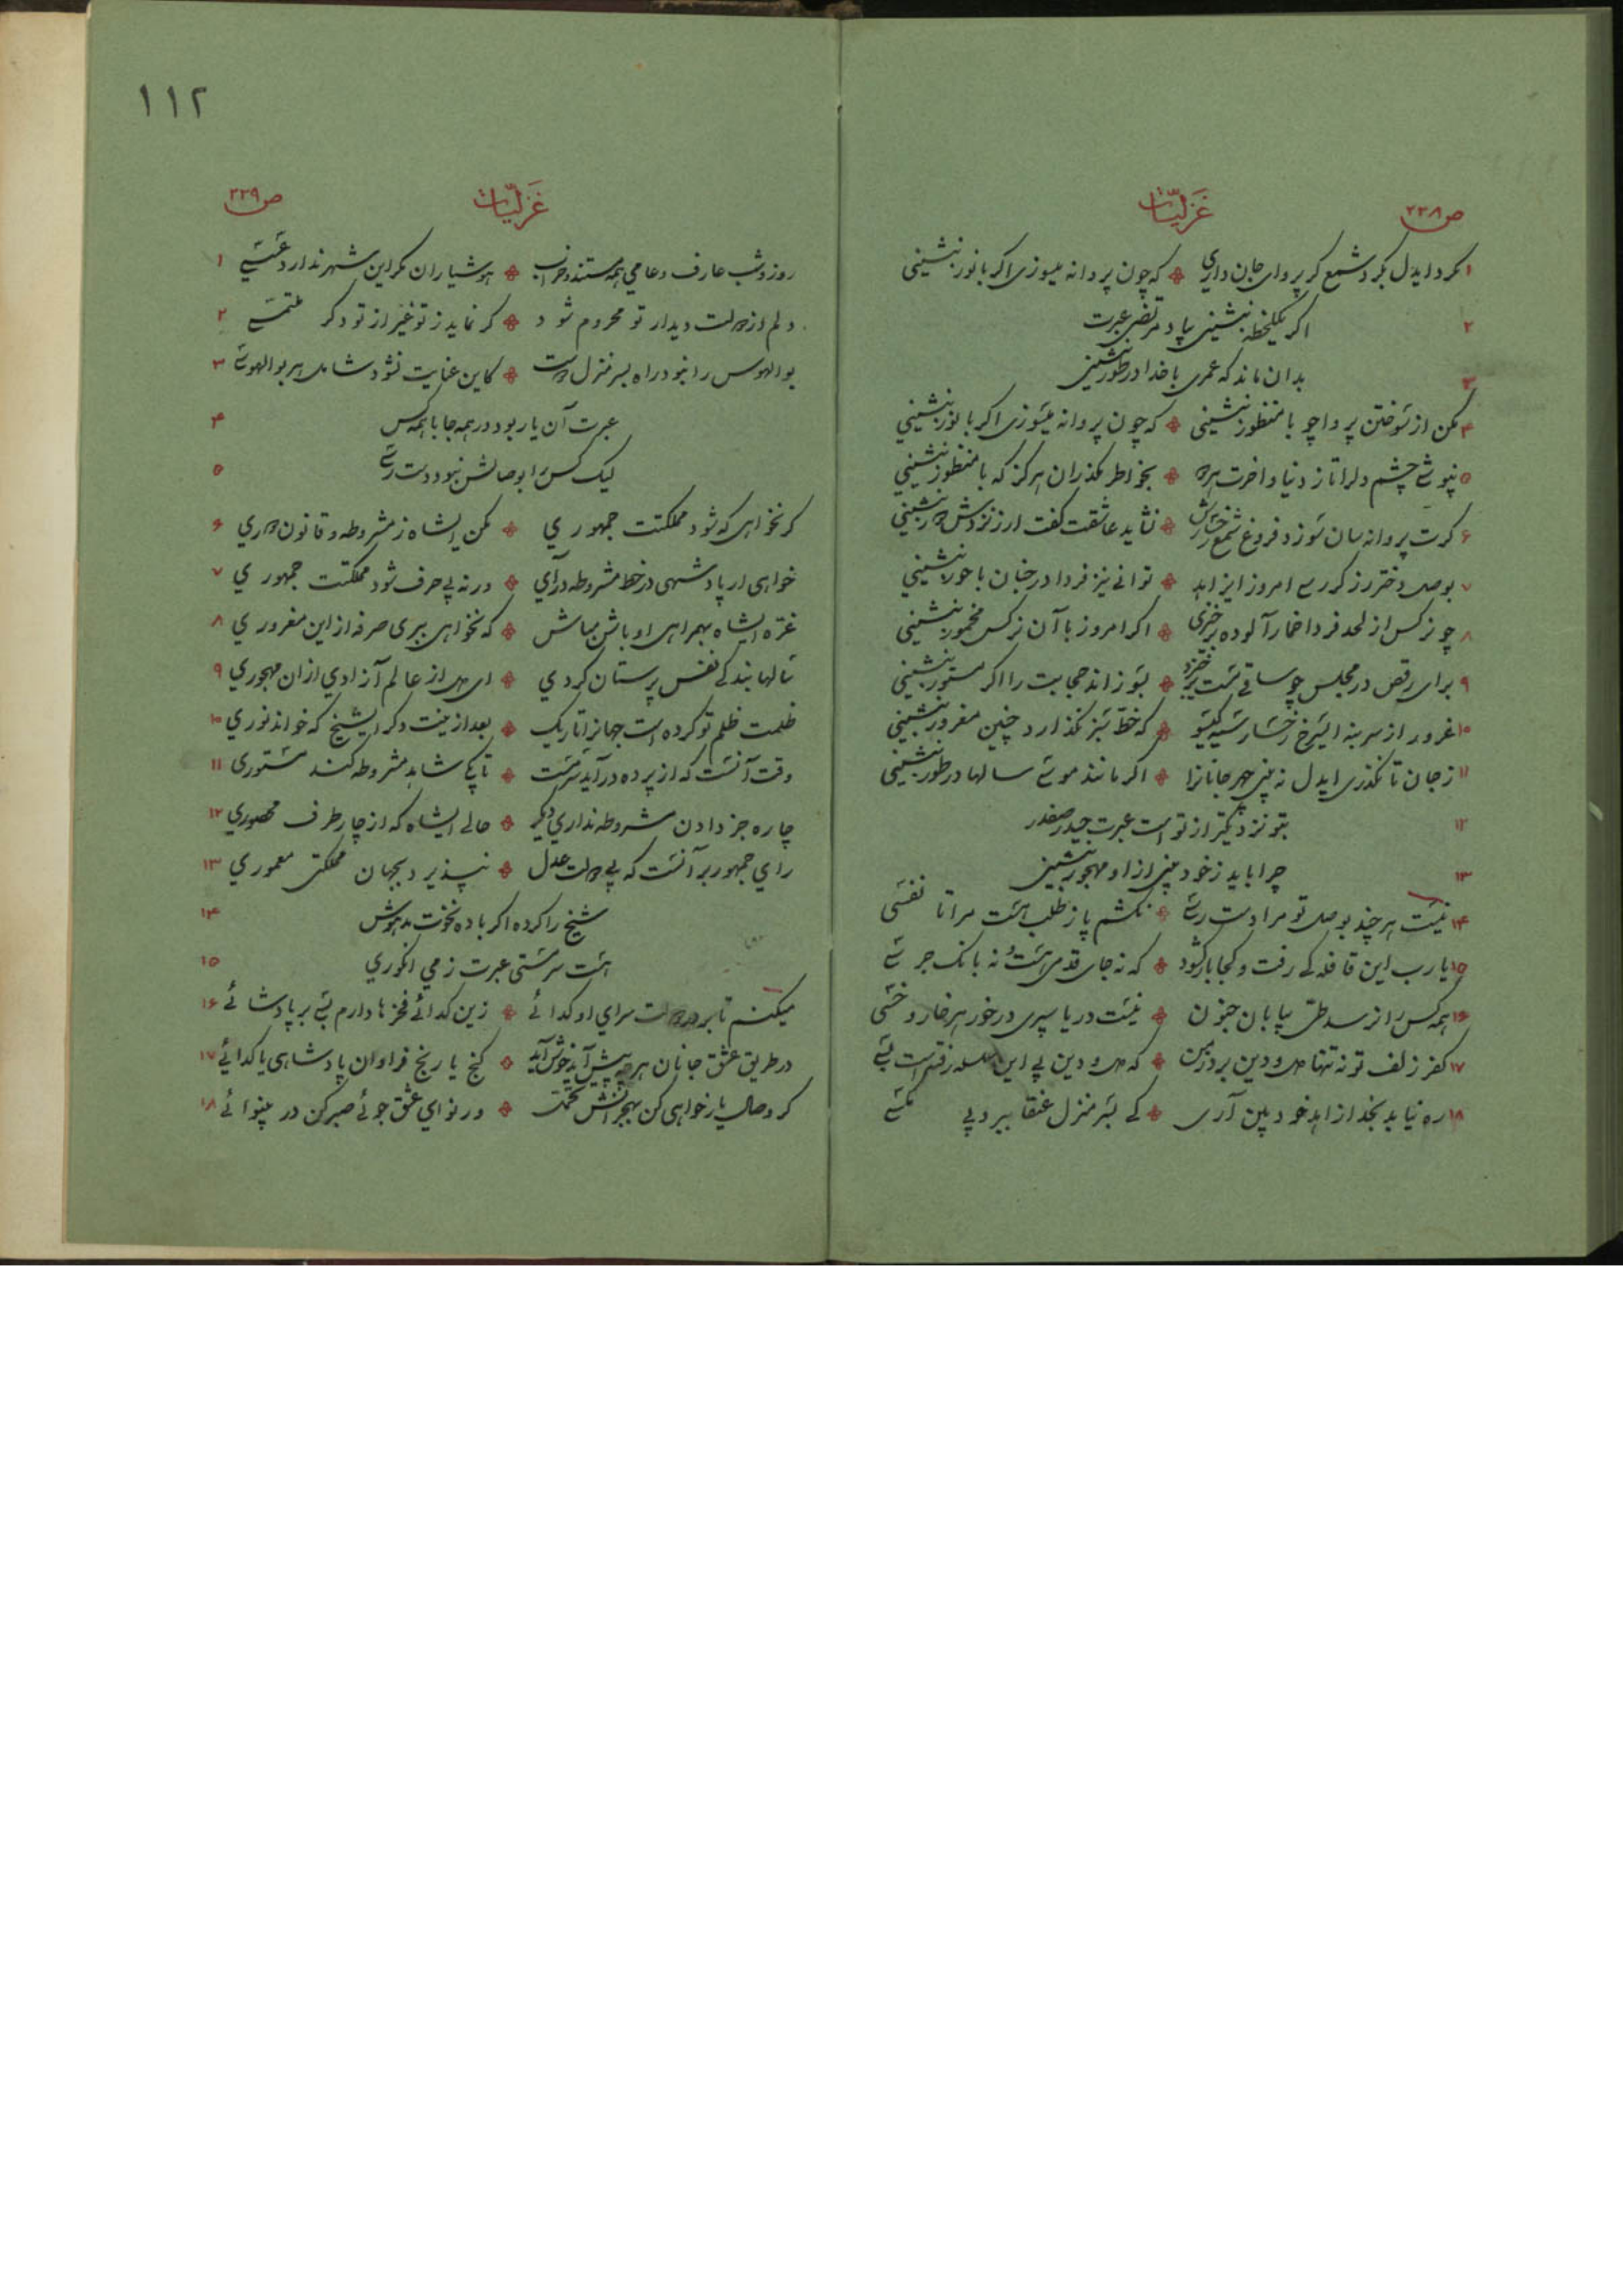 ص ۲۲۸
غزلیّات
۱ مکرد ایدل بکرد شمع کر پروای جان داری ٭ که چون پروانه میسوزی اکر با نور بنشینی
۲ اکر یکلحظه بنشینی بیاد مرتضی عبرت
۳ بدان ماند که عمری با خدا در طور بنشینی
۴ مکن از سوختن پروا چو با منظور بنشینی ٭ که چون پروانه میسوزی اکر با نور بنشینی
۵ بپوشی چشم دلرا تا ز دنیا و اخرت ٭ بخواطر مکذران هرکز که با منظور بنشینی
۶ کرت پروانه سان سوزد فروغ شمع رخسارش ٭ نشاید عاشقت کفت ار ز نزدش دور بنشینی
۷ بوصل دختر رز کر رسی امروز ای زاهد ٭ توانی نیز فردا در جنان با حور بنشینی
۸ چو نرکس از لحد فردا خمار آلوده برخیزی ٭ اکر امروز با آن نرکس مخمور بنشینی
۹ برای رقص در مجلس چو ساقی مست برخیزد ٭ بسوزاند حجابت را اکر مستور بنشینی
۱۰ غرور از سر بنه ایشوخ رخسار سیه کیسو ٭ که خطّ سبز نکذارد چنین مغرور بنشینی
۱۱ ز جان تا نکذری ایدل نه بینی چهر جانانرا ٭ اکر مانند موسی سالها در طور بنشینی
۱۲ بتو نزدیکتر از تو است عبرت حیدر صفدر
۱۳ چرا باید ز خود بینی از او مهجور بنشینی
۱۴ نیست هرچند بوصل تو مرا دست رسی ٭ نکشم پا ز طلب هست مرا تا نفسی
۱۵ یارب این قافله کی رفت و کجا بار کشود ٭ که نه جای قدمی هست و نه بانک جرسی
۱۶ همه کس را نرسد طیّ بیابان جنون ٭ نیست دریا سپری در خور هر خار و خسی
۱۷ کفر زلف تو نه تنها دل و دین برد ز من ٭ که دل و دین پی این سلسله رفته است بسی
۱۸ ره نیابد بخدا زاهد خود بین آری ٭ کی بسر منزل عنقا ببرد پی مکسی
۱۱۲
غزلیّات
ص ۲۲۹
روز و شب عارف و عامی همه مستند و خراب ٭ هوشیاران مکر این شهر ندارد عسسی ۱
دلم از دولت دیدار تو محروم شود ٭ کر نماید ز تو غیر از تو دکر ملتمسی ۲
بوالهوس را نبود راه بسر منزل دوست ٭ کاین عنایت نشود شامل هر بوالهوسی ۳
عبرت آن یار بود در همه جا با همه کس ۴
لیک کس را بوصالش نبود دست رسی ۵
کر نخواهی که شود مملکتت جمهوری ٭ مکن ایشاه ز مشروطه و قانون دوری ۶
خواهی ار پادشهی در خط مشروطه درآی ٭ ورنه بی حرف شود مملکتت جمهوری ۷
غرّه ایشاه بهمراهی اوباش مباش ٭ که نخواهی ببری صرفه از این مغروری ۸
سالها بندکی نفس پرستان کردی ٭ ای دل از عالم آزادی از ان مهجوری ۹
ظلمت ظلم تو کرده است جهانرا تاریک ٭ بعد از ینت دکر ایشیخ که خواند نوری ۱۰
وقت آنست که از پرده درآید سرمست ٭ تا بکی شاهد مشروطه کند مستوری ۱۱
چاره جز دادن مشروطه نداری دیکر ٭ حالی ایشاه که از چار طرف محصوری ۱۲
رای جمهور بر آنست که بی دولت عدل ٭ نپذیرد بجهان مملکتی معموری ۱۳
شیخ را کرده اکر باده نخوت مدهوش ۱۴
هست سرمستی عبرت ز می انکوری ۱۵
میکنم تا بر در دولت سرای او کدائی ٭ زین کدائی فخرها دارم بسی بر پادشائی ۱۶
در طریق عشق جانان هر چه پیش آید خوش آید ٭ کنج یا رنج فراوان پادشاهی یا کدائی ۱۷
کر وصال یار خواهی کن بهجرانش تحمّل ٭ ور نوای عشق جوئی صبر کن در بینوائی ۱۸